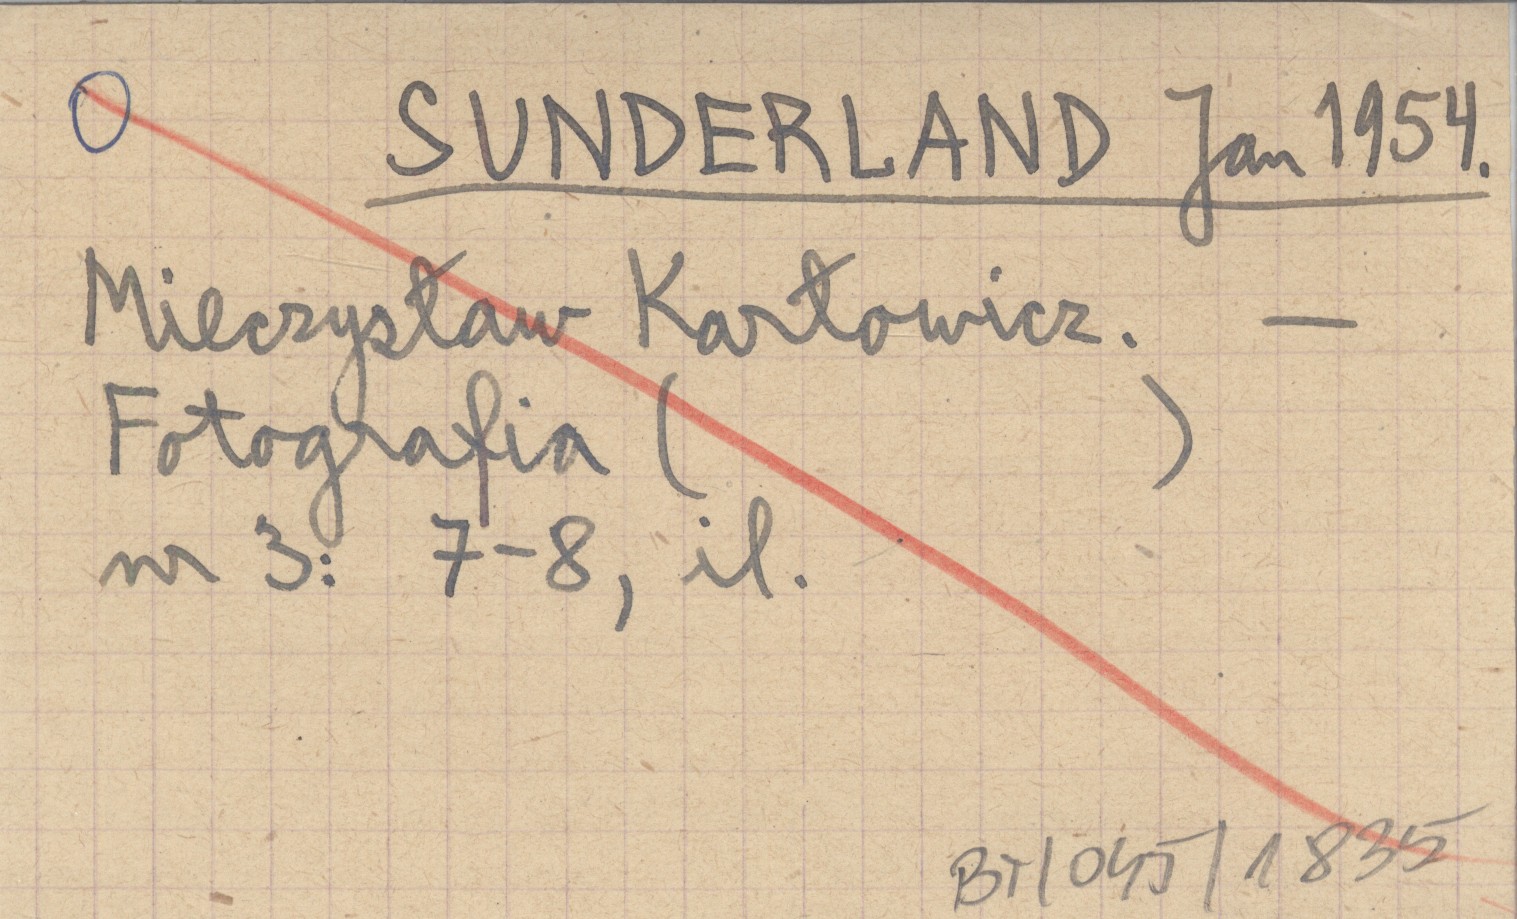 O SUNDERLAND Jan 1954.
Mieczysław Karłowicz. —
Fotografia ( )
nr 3: 7-8, il.
BT/045/1835